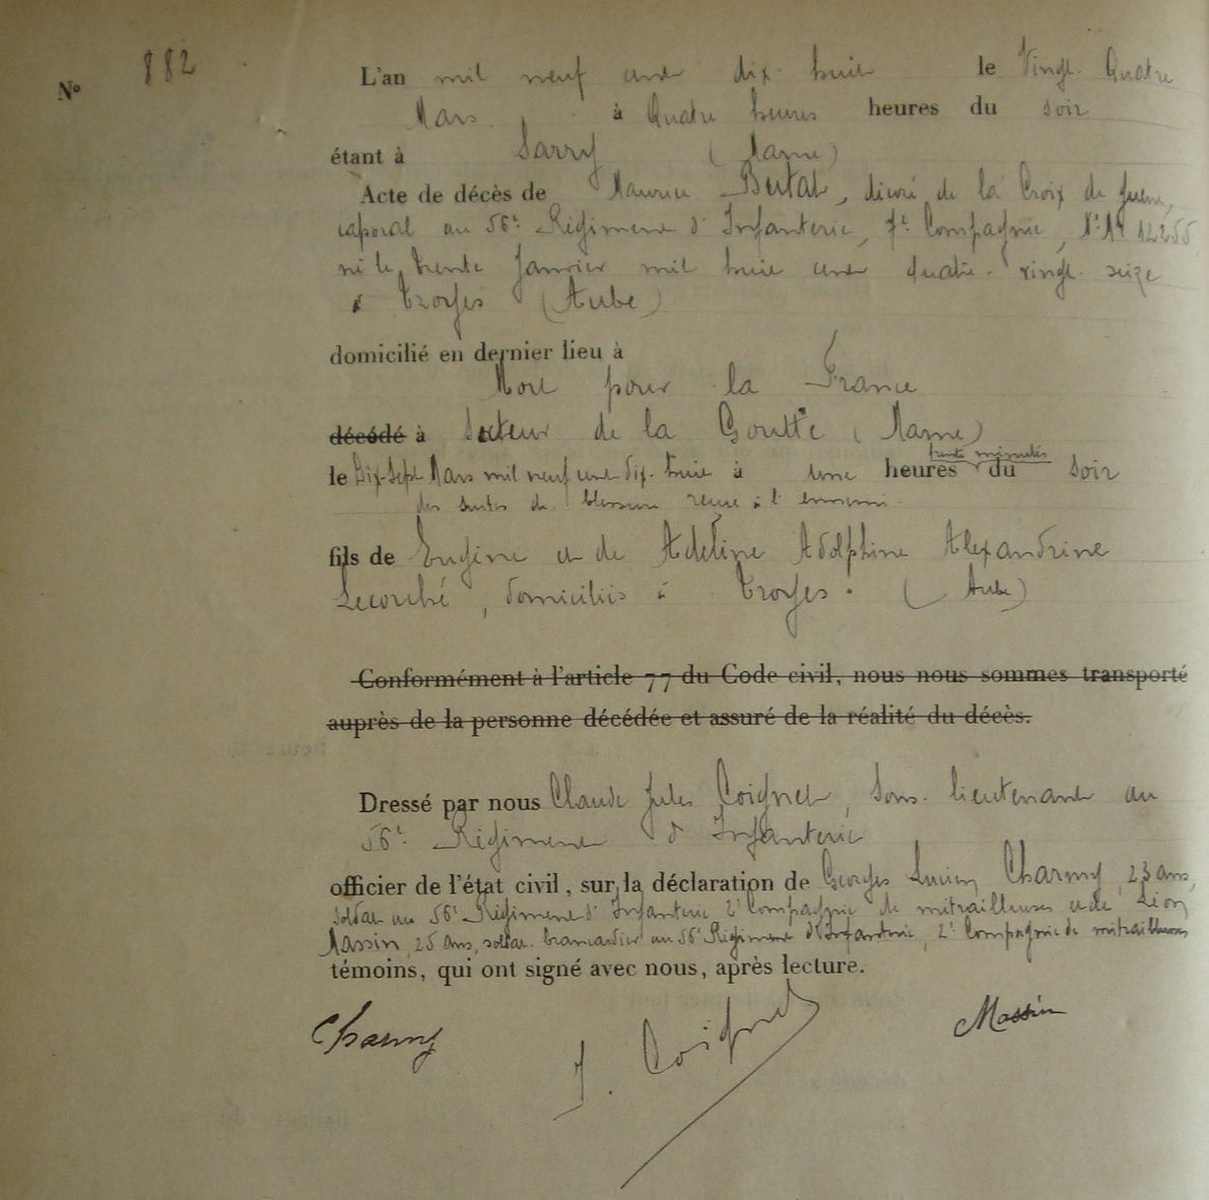 N° 882
L'an mil neuf cent dix huit le Vingt Quatre
Mars à Quatre heures heures du soir
étant à Sarry (Marne)
Acte de décès de Maurice Butat, décoré de la Croix de guerre,
caporal au 56e Régiment d'Infanterie, 7e Compagnie, N° Mle 12255
né le trente Janvier mil huit cent quatre-vingt seize
à Troyes (Aube)
domicilié en dernier lieu à
Mort pour la France
décédé à Secteur de la Goutte (Marne)
le Dix-Sept Mars mil neuf cent dix-huit à une heures trente minutes du soir
des suites de blessure reçue à l'ennemi
fils de Eugène et de Adeline Adolphine Alexandrine
Lecorché, domiciliés à Troyes. (Aube)
Conformément à l'article 77 du Code civil, nous nous sommes transporté
auprès de la personne décédée et assuré de la réalité du décès.
Dressé par nous Claude Jules Coignet, Sous-lieutenant au
56e Régiment d'Infanterie
officier de l'état civil, sur la déclaration de Georges Lucien Charmy, 23 ans,
soldat au 56e Régiment d'Infanterie 2e Compagnie de mitrailleuses et de Léon
Massin, 25 ans, soldat brancardier au 56e Régiment d'Infanterie, 2e Compagnie de mitrailleuses
témoins, qui ont signé avec nous, après lecture.
Charmy J. Coignet Massin